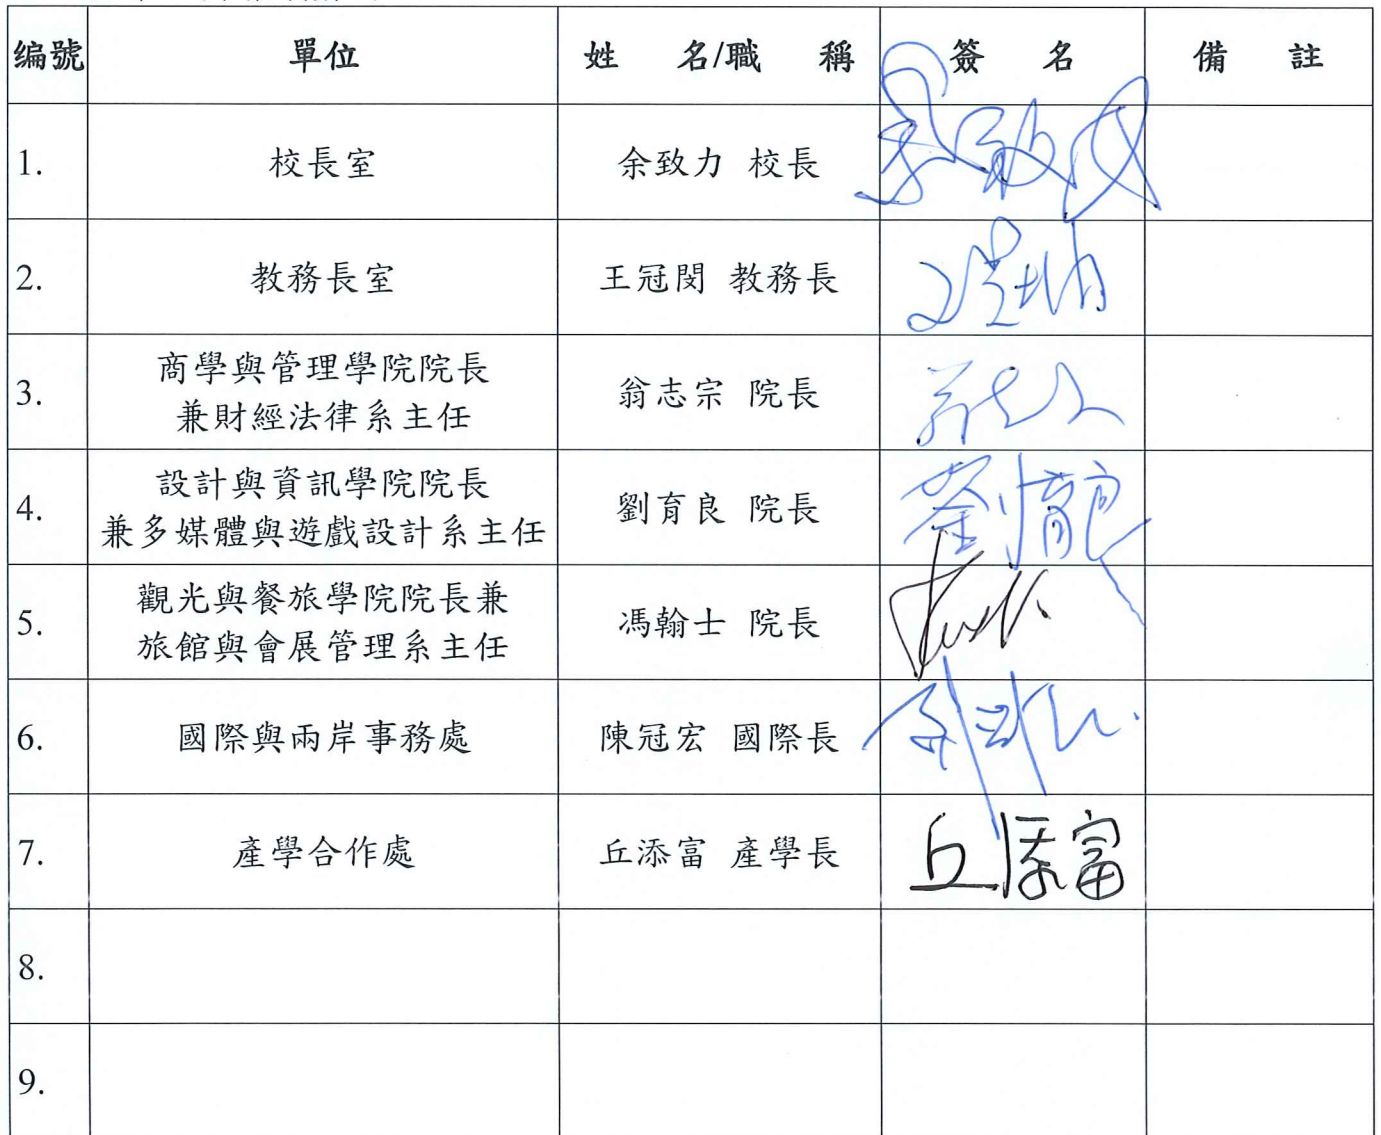 编號 單位 姓 名/職 稱 簽 名 備 註
1. 校長室 余致力 校長
2. 教務長室 王冠閔 教務長
3. 商學與管理學院院長
兼財經法律系主任 翁志宗 院長
4. 設計與資訊學院院長
兼多媒體與遊戲設計系主任 劉育良 院長 劉育良
5. 觀光與餐旅學院院長兼
旅館與會展管理系主任 馮翰士 院長
6. 國際與兩岸事務處 陳冠宏 國際長
7. 產學合作處 丘添富 產學長 丘添富
8.
9.